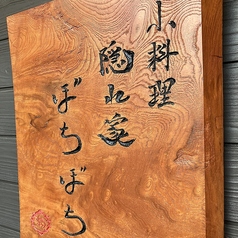 小料理
隠れ家
ぼちぼち